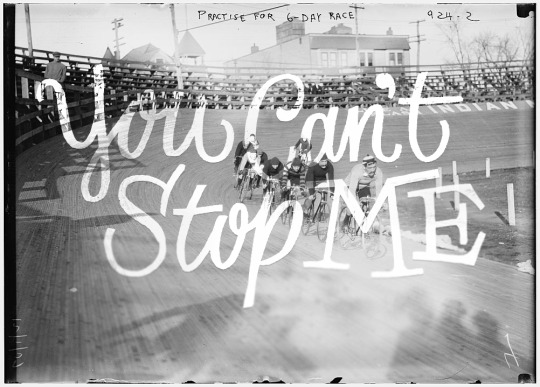 PRACTISE FOR 6-DAY RACE 924-2
You Can't
INDIAN
Stop ME